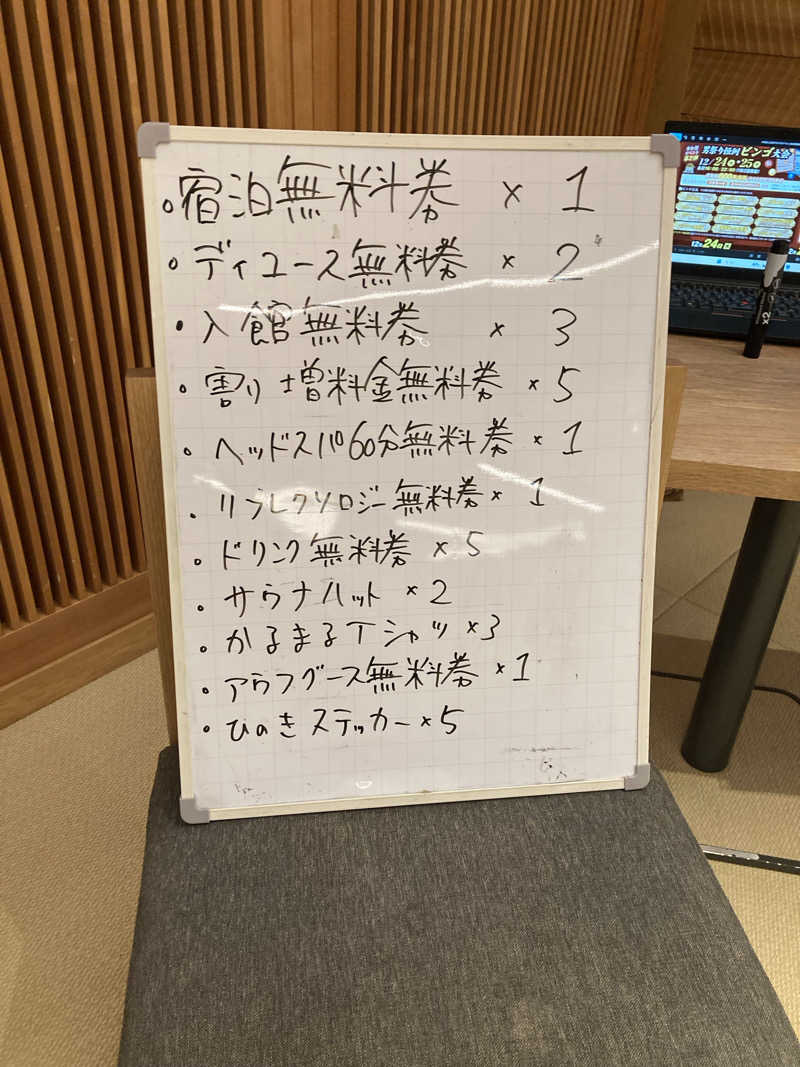 ・宿泊無料券 × 1
・デイユース無料券 × 2
・入館無料券 × 3
・割り増料金無料券 × 5
・ヘッドスパ60分無料券 × 1
・リフレクソロジー無料券 × 1
・ドリンク無料券 × 5
・サウナハット × 2
・かるまるTシャツ × 3
・アウフグース無料券 × 1
・ひのきステッカー × 5
ビンゴ大会
12/24 25
12月24日